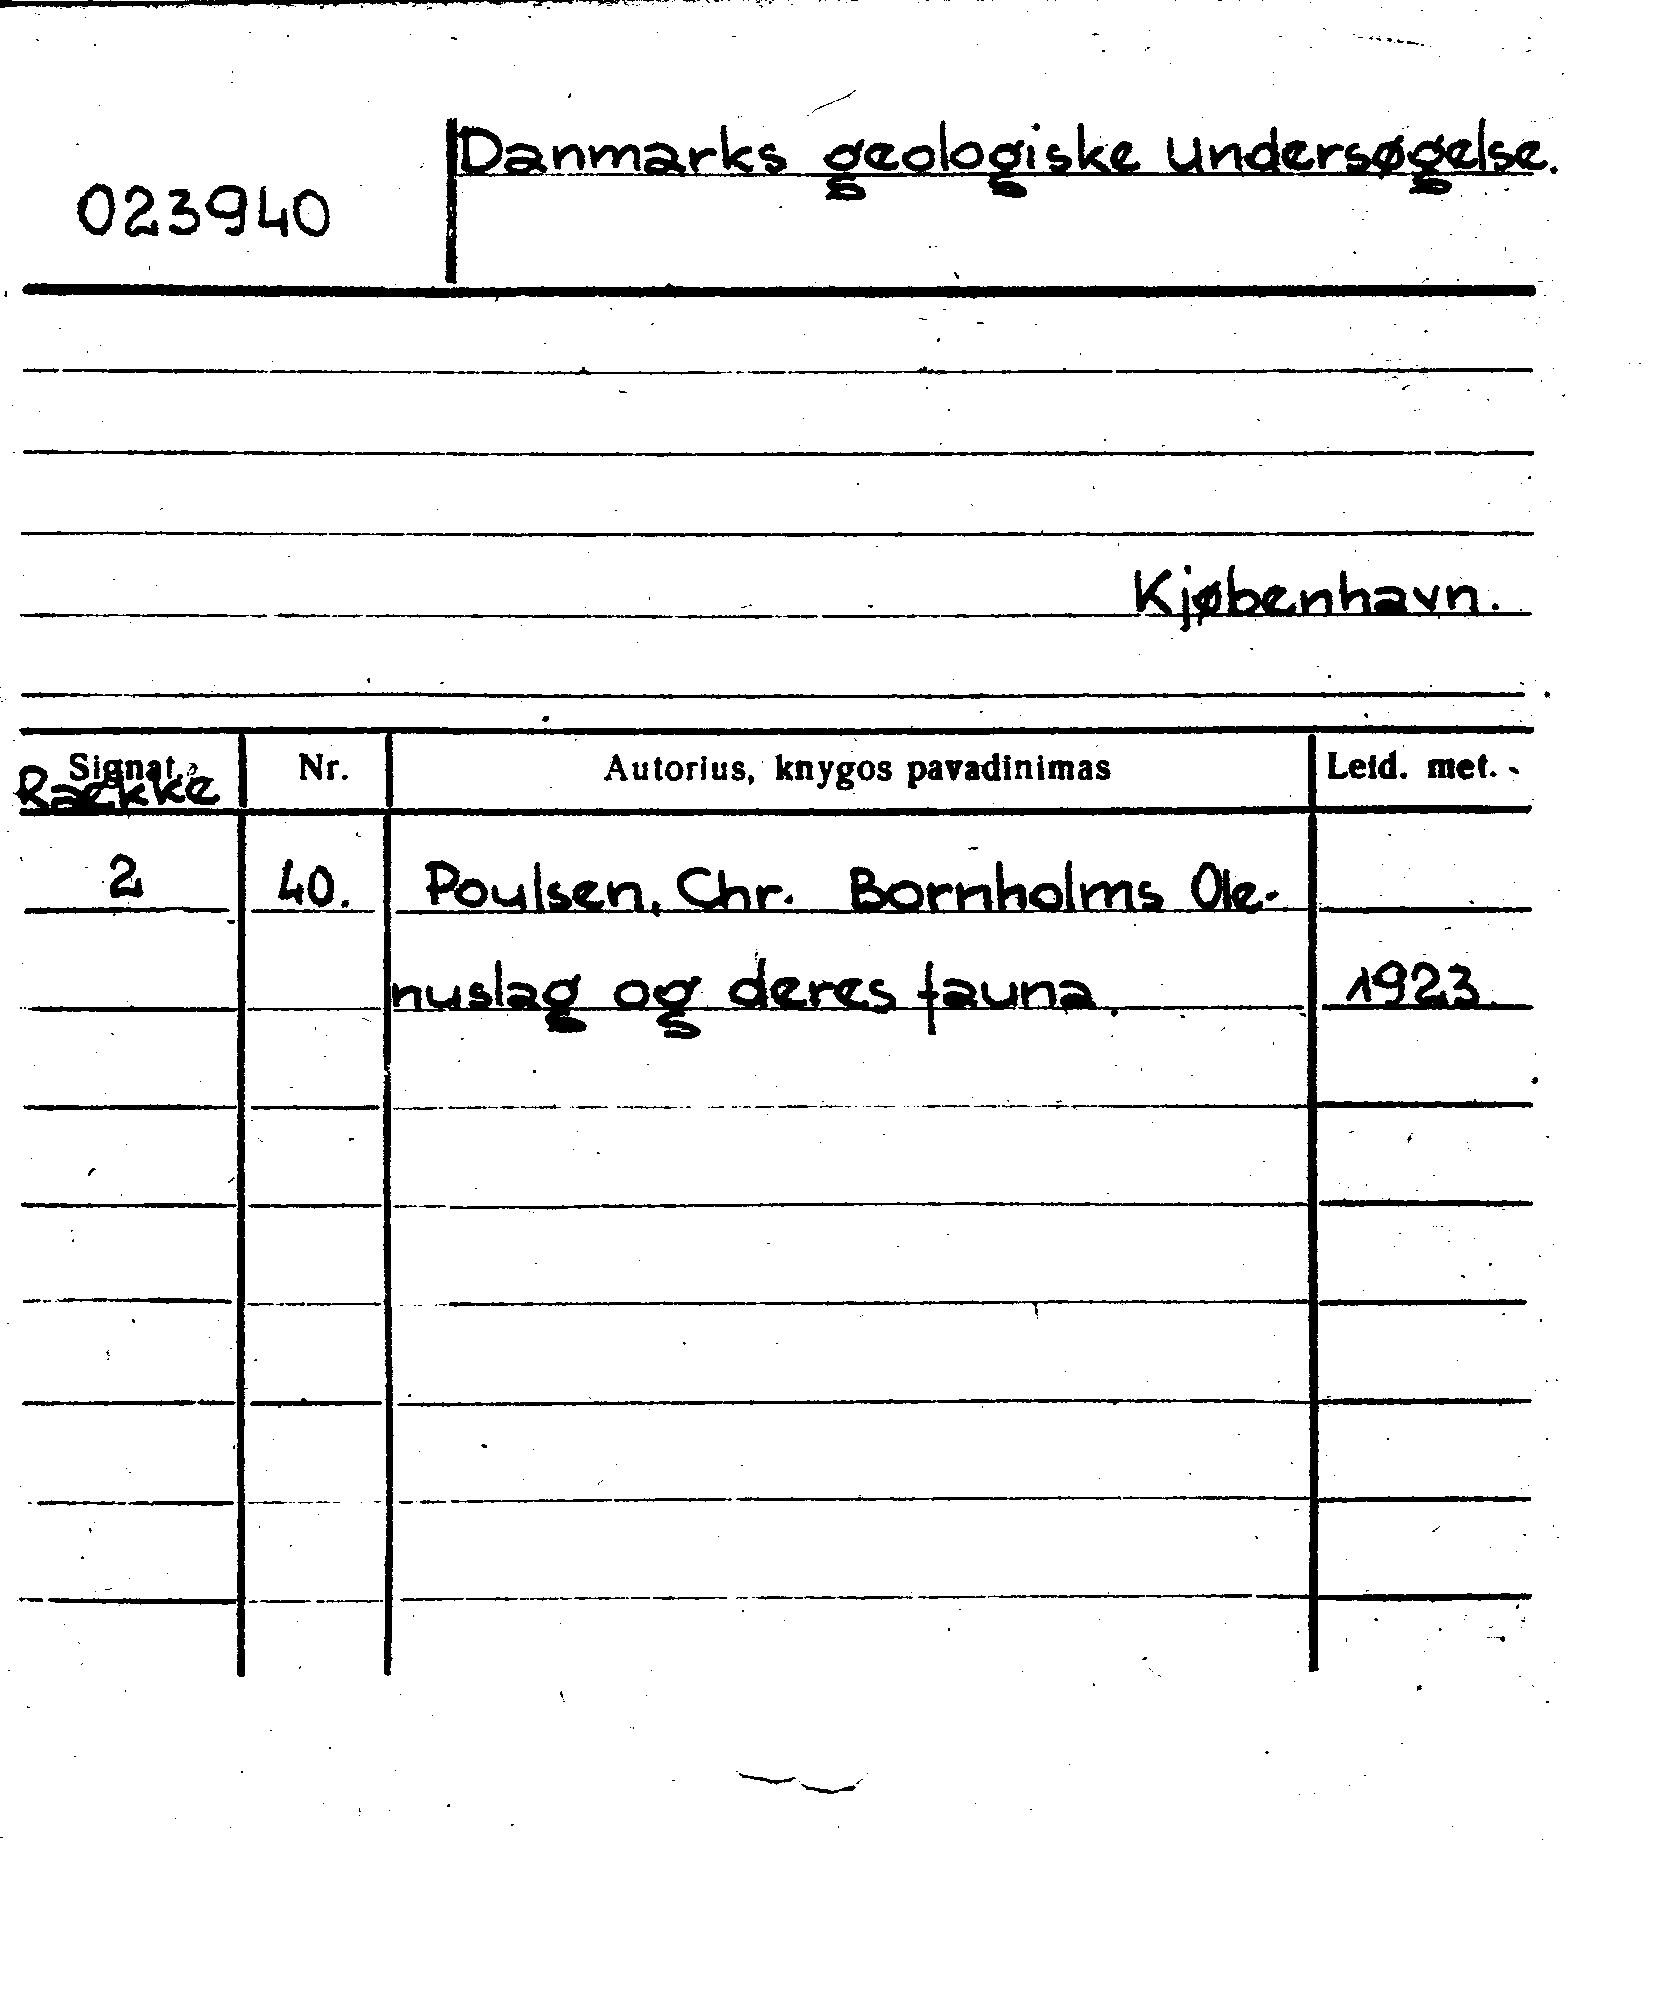 Danmarks geologiske undersøgelse.
023940
Kjøbenhavn.
Signat. Nr. Autorius, knygos pavadinimas Leid. met.
Raekke
2 40. Poulsen, Chr. Bornholms Ole-
nuslag og deres fauna 1923